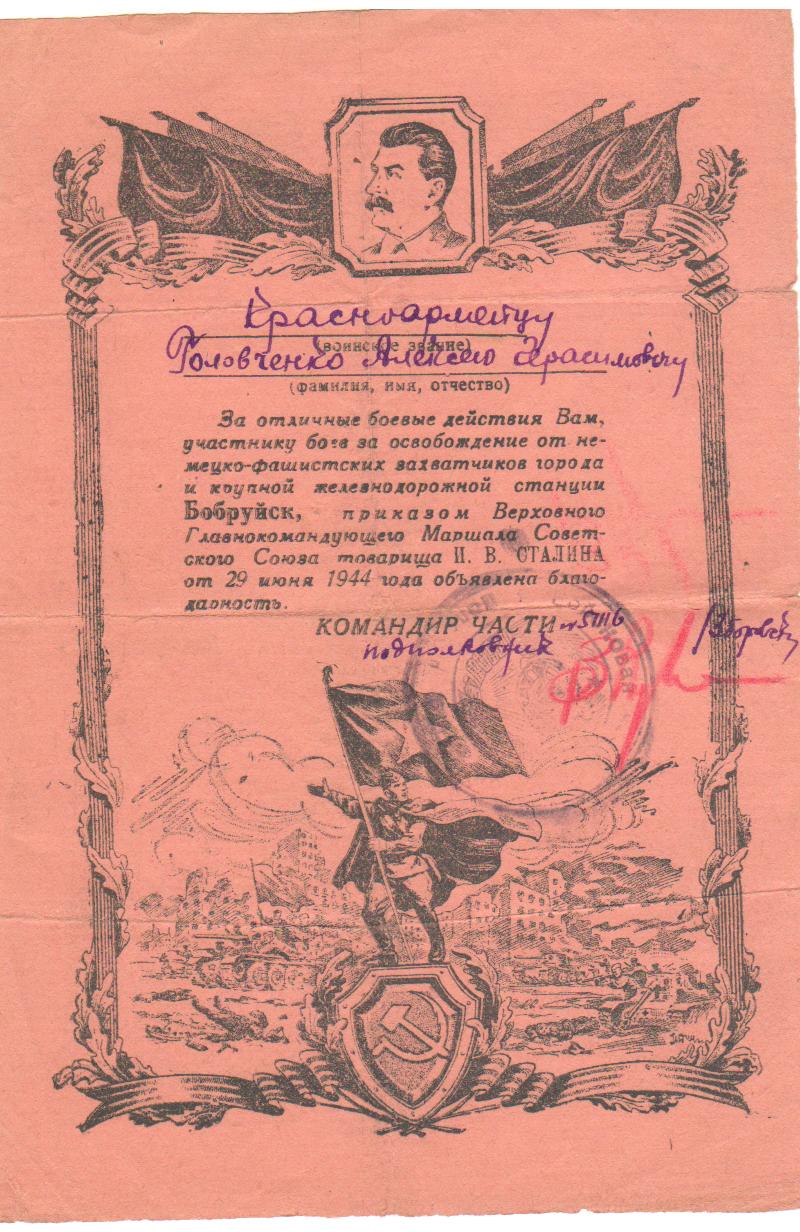 Красноармейцу
(воинское звание)
Головченко Алексею Герасимовичу
(фамилия, имя, отчество)
За отличные боевые действия Вам,
участнику боев за освобождение от не-
мецко-фашистских захватчиков города
и крупной железнодорожной станции
Бобруйск, приказом Верховного
Главнокомандующего Маршала Совет-
ского Союза товарища И. В. СТАЛИНА
от 29 июня 1944 года объявлена благо-
дарность.
КОМАНДИР ЧАСТИ
подполковник